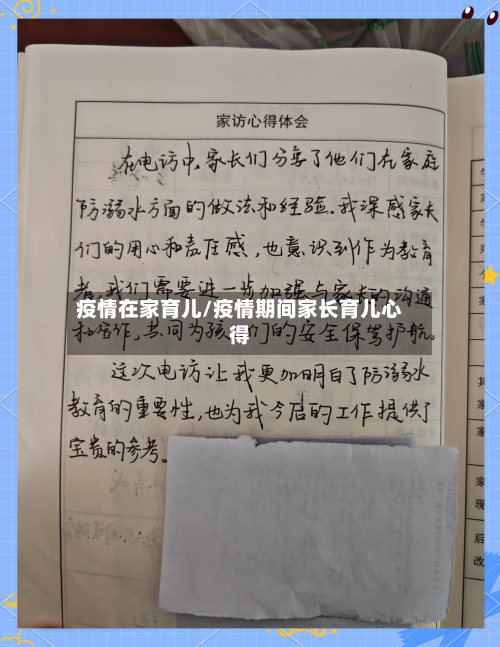 家访心得体会
在电访中，家长们分享了他们在家庭
防溺水方面的做法和经验。我深感家长
们的用心和责任感，也意识到作为教育
者，我们需要进一步加强与家长的沟通
疫情在家育儿/疫情期间家长育儿心
得
和合作，共同为孩子们的安全保驾护航。
这次电访让我更加明白了防溺水
教育的重要性，也为我今后的工作提供了
宝贵的参考。
家
现
后
改